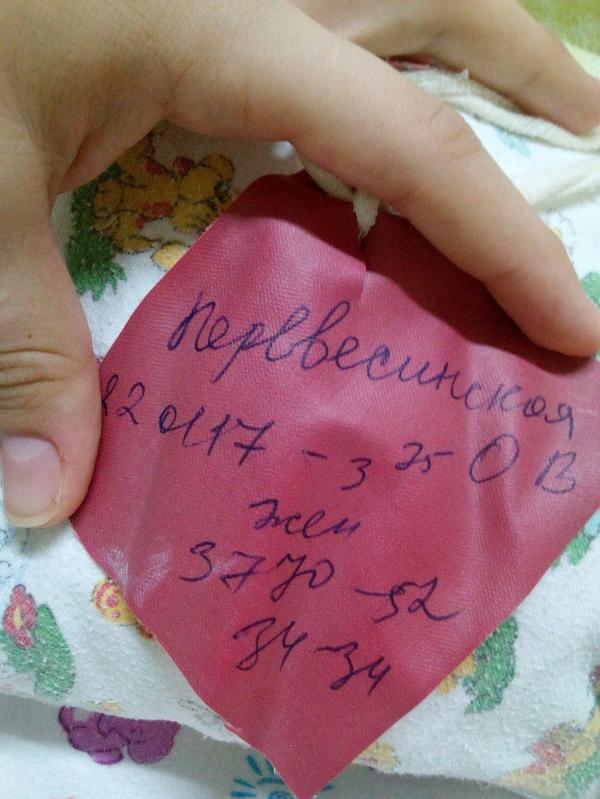 Перввесинская
22 01 17 - 3 25 О В
жен
3770 - 52
34-34